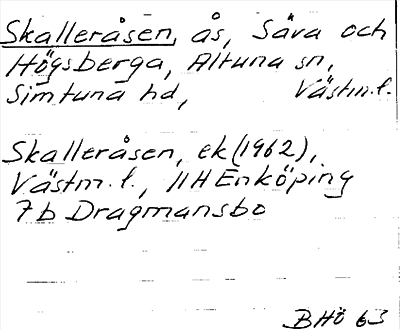 Skalleråsen, ås, Säva och
Högsberga, Altuna sn,
Simtuna hd, Västm.l.
Skalleråsen, ek (1962),
Västm.l., 11H Enköping
7b Dragmansbo
BHö 63